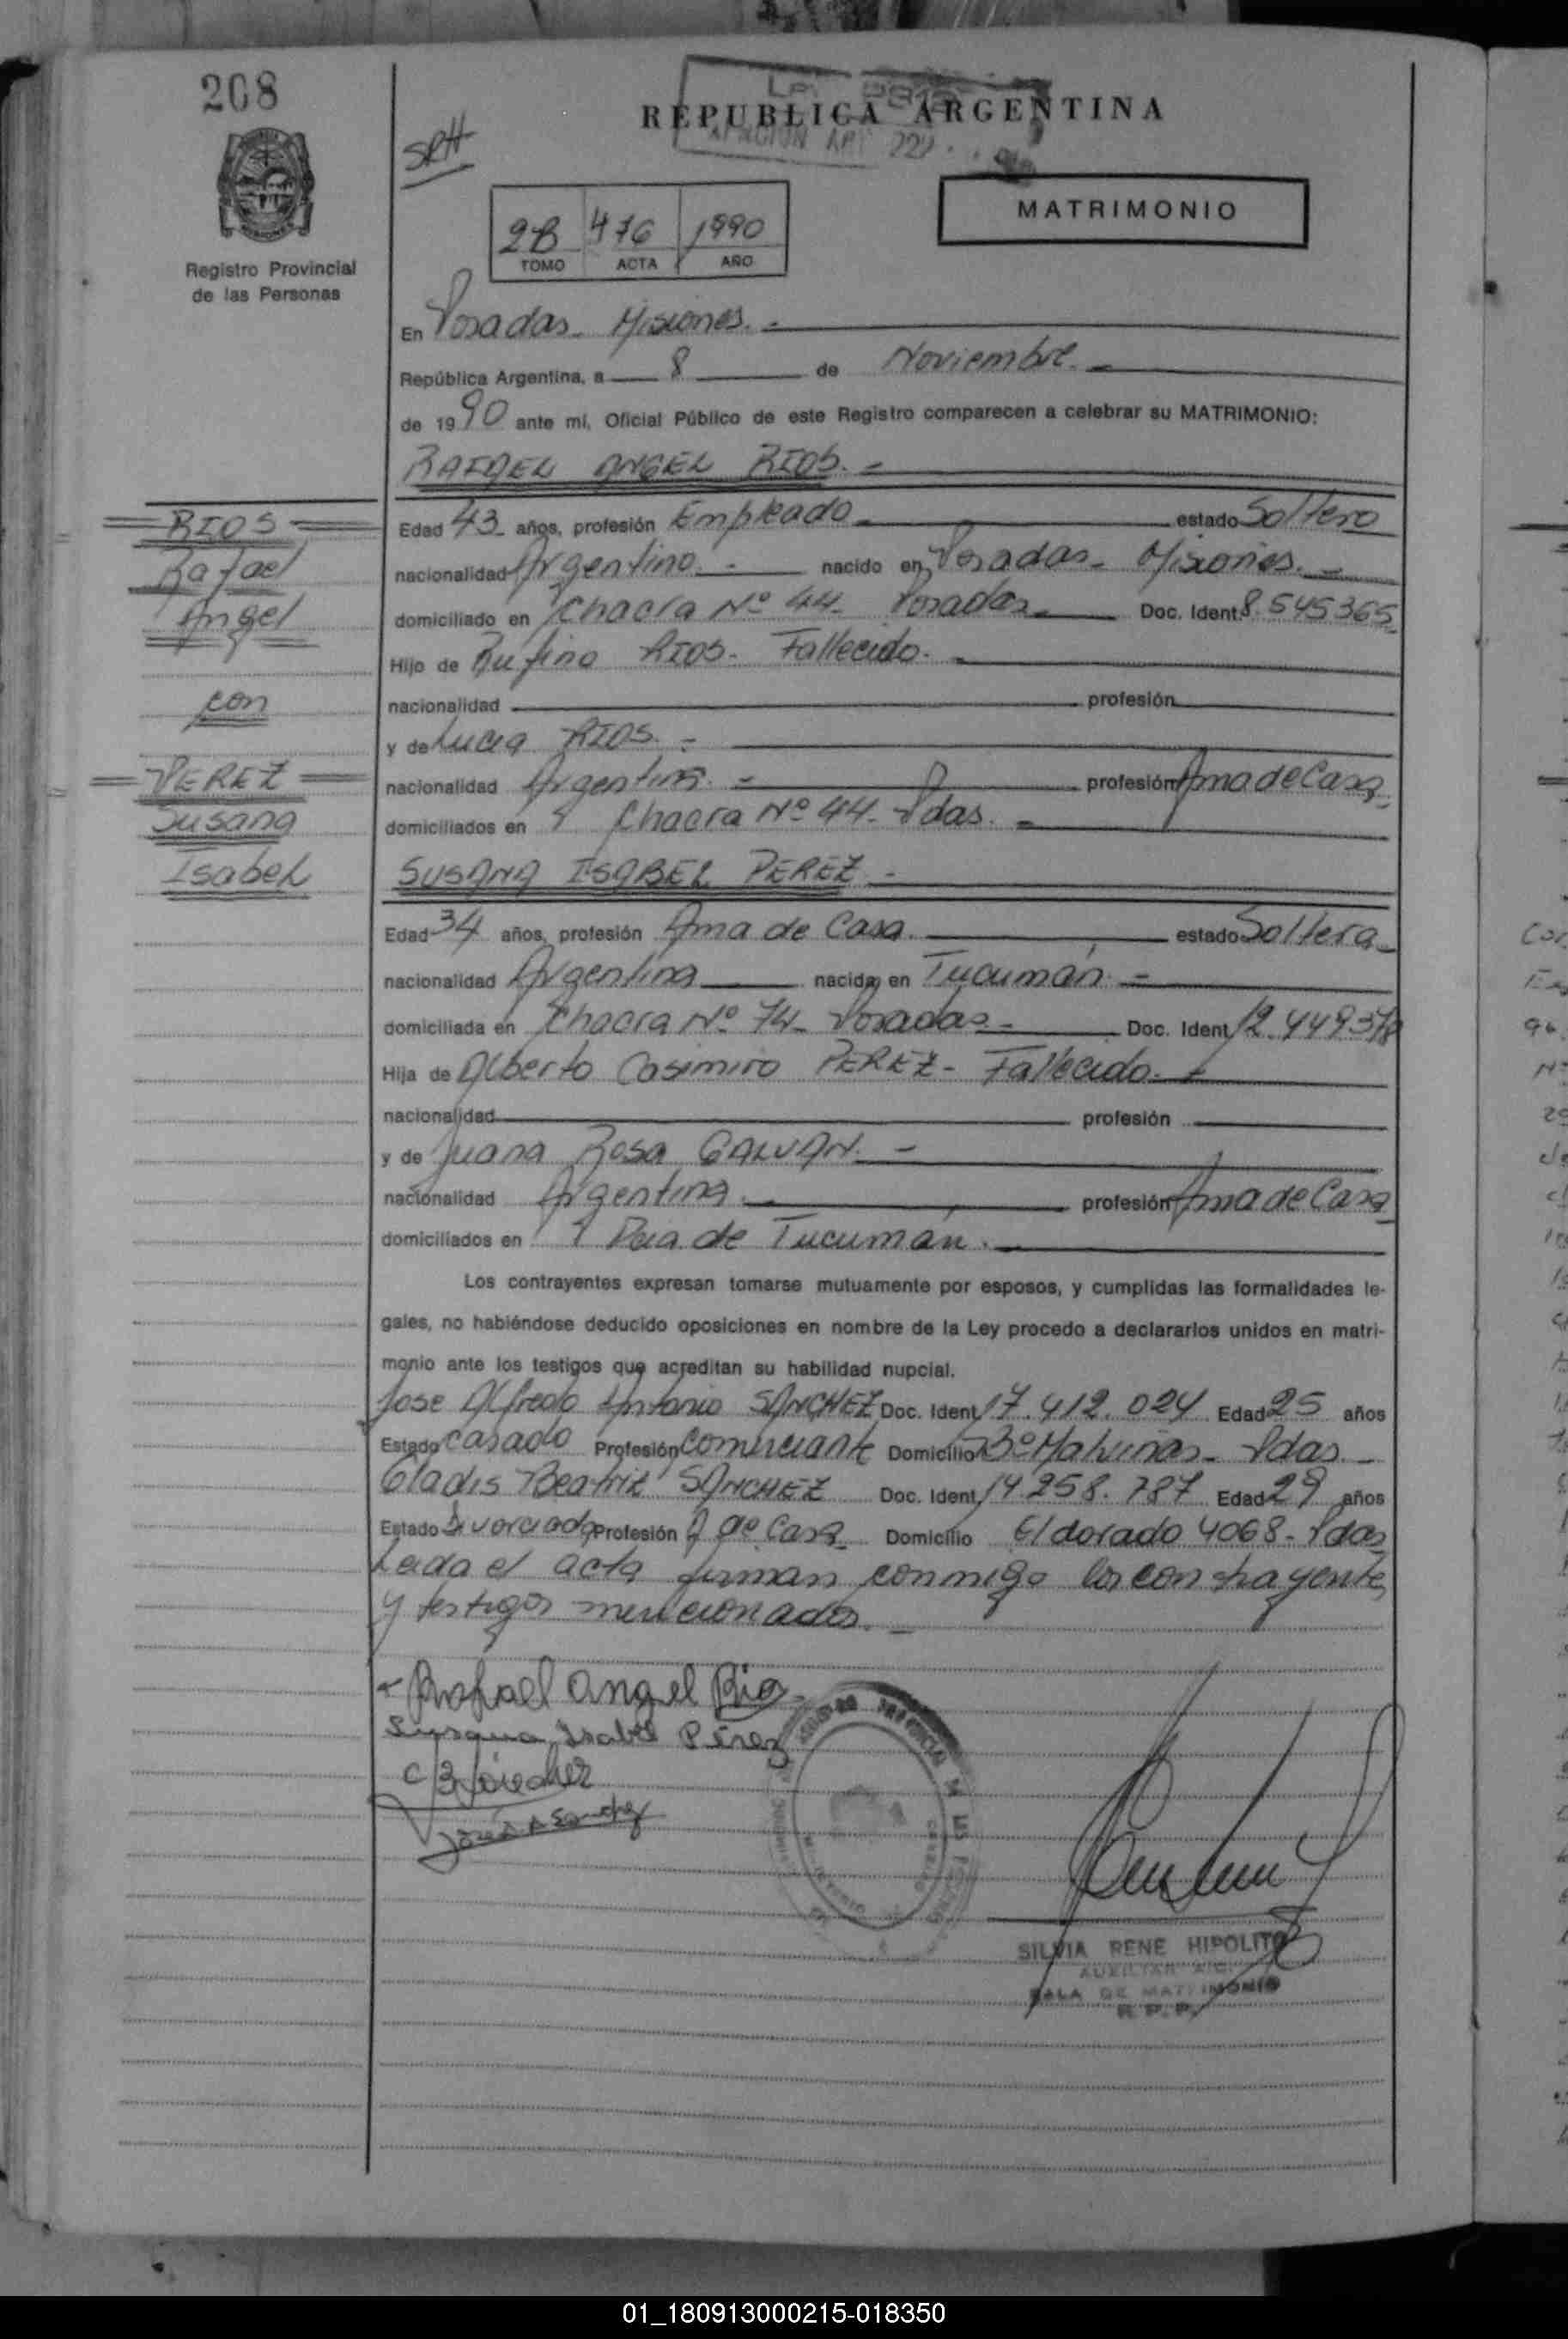 208
REPUBLICA ARGENTINA
SRH
MATRIMONIO
2B 476 1990
TOMO ACTA AÑO
Registro Provincial
de las Personas
En Posadas - Misiones.-
República Argentina, a 8 de Noviembre.-
de 1990 ante mí, Oficial Público de este Registro comparecen a celebrar su MATRIMONIO:
RAFAEL ANGEL RIOS.-
RIOS
Rafael
Angel
con
PEREZ
Susana
Isabel
Edad 43 años, profesión Empleado estado Soltero
nacionalidad Argentino.- nacido en Posadas - Misiones.-
domiciliado en Chacra Nº 44- Posadas- Doc. Ident. 8.545365
Hijo de Rufino RIOS- Fallecido.-
nacionalidad profesión
y de Lucia RIOS.-
nacionalidad Argentina.- profesión Ama de Casa
domiciliados en Chacra Nº 44- Pdas.-
SUSANA ISABEL PEREZ.-
Edad 34 años, profesión Ama de Casa. estado Soltera
nacionalidad Argentina nacida en Tucumán.-
domiciliada en Chacra Nº 74- Posadas- Doc. Ident. 12.449378
Hija de Alberto Casimiro PEREZ- Fallecido.-
nacionalidad profesión
y de Juana Rosa GALVAN.-
nacionalidad Argentina. profesión Ama de Casa
domiciliados en Pcia. de Tucumán.-
Los contrayentes expresan tomarse mutuamente por esposos, y cumplidas las formalidades le-
gales, no habiéndose deducido oposiciones en nombre de la Ley procedo a declararlos unidos en matri-
monio ante los testigos que acreditan su habilidad nupcial.
Jose Alfredo Antonio SANCHEZ Doc. Ident. 17.412.024 Edad 25 años
Estado Casado Profesión Comerciante Domicilio Bº Malvinas- Pdas.-
Gladis Beatriz SANCHEZ Doc. Ident. 14.258.787 Edad 29 años
Estado Divorciada Profesión A de Casa Domicilio Eldorado 4068- Pdas
Leida el acta firman conmigo los contrayentes
y testigos mencionados.-
Rafael Angel Rios
Susana Isabel Pérez
José A Sanchez
SILVIA RENE HIPOLITO
AUXILIAR
SALA DE MATRIMONIO
R. P. P.
01_180913000215-018350